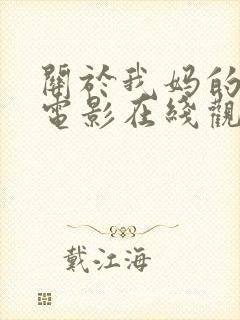 關於我妈的
電影在綫觀
戴江海